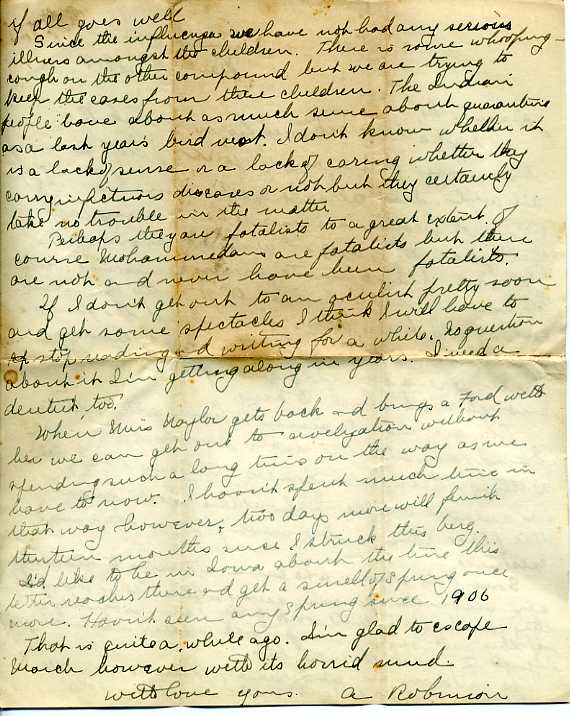 if all goes well
Since the influenza we have not had any serious
illness amongst the children. There is some whooping-
cough on the other compound but we are trying to
keep the cases from these children. The Indian
people have about as much sense about quarantine
as a last year's bird nest. I don't know whether it
is a lack of sense or a lack of caring whether they
carry infectious diseases or not but they certainly
take no trouble in the matter
Perhaps they are fatalists to a great extent. Of
course Mohammedans are fatalists but these
are not and never have been fatalists.
If I don't get out to an oculist pretty soon
and get some spectacles I think I will have to
stop reading and writing for a while. No question
about it I'm getting along in years. I need a
dentist, too.
When Miss Naylor gets back and brings a Ford with
her we can get out to civelization without
spending such a long time on the way as we
have to now. I havn't spent much time in
that way however, two days more will finish
thirteen months since I struck this berg.
I'd like to be in Iowa about the time this
letter reaches there and get a smell of spring once
more. Havn't seen any spring since 1906
That is quite a while ago. I'm glad to escape
March however with its horrid mud.
With love yours. A Robinson